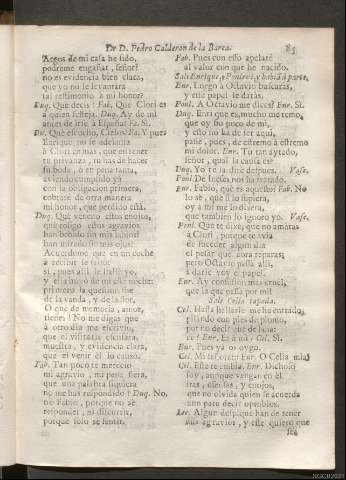 De D. Pedro Calderon de la Barca. 85
Argos de mi casa he sido,
podreme engañar, señor?
no es evidencia bien clara,
que yo no le levantara
tal testimonio à mi honor?
Duq. Que decis? Fab. Que Clori es
à quien festeja. Duq. Ay de mi
antes de irse à España? Fa. Si.
Du. Què escucho, Cielos? Y pues
Enrique no se adelanta
à Clori en mas, que en tener
tu privanza, tu has de hacer
su boda, ò en pena tanta,
aviendo cumplido yà
con la obligacion primera,
cobrare de otra manera
mi honor, que perdido està.
Duq. Què veneno estos enojos,
que rosigo estos agravios
han bebido sin mis labios?
han mirado sin mis ojos?
Acuerdome que en un coche
à recibir le
si, pues alli le hallè yo,
y ella luego de mi esta noche:
primero la question fue
de la vanda, y de la flor.
O que de memoria, amor,
tienes! No me digas que
à otro dia me escrivio,
que el visitarte escusara,
muestra, y evidencia clara,
que el venir èl lo causò.
Fab. Tan poco te mereciò
mi agravio, mi pena fiera,
que una palabra siquiera
no me has respondido? Duq. No,
no Fabio, porque no sè
responder, ni discurrir,
porque solo sè sentir.
Fab. Pues con esso apelarè
al valor con que he nacido.
Sale Enrique, y Ponlevi, y habla à parte.
Enr. Luego à Octavio buscaràs,
y este papel le daràs.
Ponl. A Octavio me dices? Enr. Si.
Duq. Enriq que es, mucho me temo,
que oy sea poco de mi,
y esto no ha de ser aqui,
passe, pues, de estremo à estremo
mi dolor. Enr. Tu tan ayrado,
señor, qual la causa es?
Duq. Yo tu la dirè despues. Vase.
Ponl. De sesos nos ha tratado.
Enr. Fabio, què es aquello? Fab. No
lo sè, que si lo supiera,
oy à mi me lo dixera,
que tambien lo ignoro yo. Vase.
Ponl. Què te dixe, que no amàras
à Clori, porque te avia
de suceder algun dia
el pesar que aora reparas;
pero Octavio passa alli,
à darle voy el papel.
Enr. Ay confusion mas cruel,
que la que passa por mi!
Sale Celia tapada.
Cel. Hasta hallarle me he entrado,
pisando con pies de plomo,
por no decir que de lana:
ce? Enr. Es à mi? Cel. Si.
Enr. Pues ya os oygo.
Cel. Mi señora: Enr. O Celia mia!
Cel. Este te embia. Enr. Dichoso
soy, aunque vengan en èl
iras, ofensas, y enojos,
que no olvida quien se acuerda
aun para decir oprobios.
Lee. Algun desquique han de tener
mis agravios, y este quiero que
sea